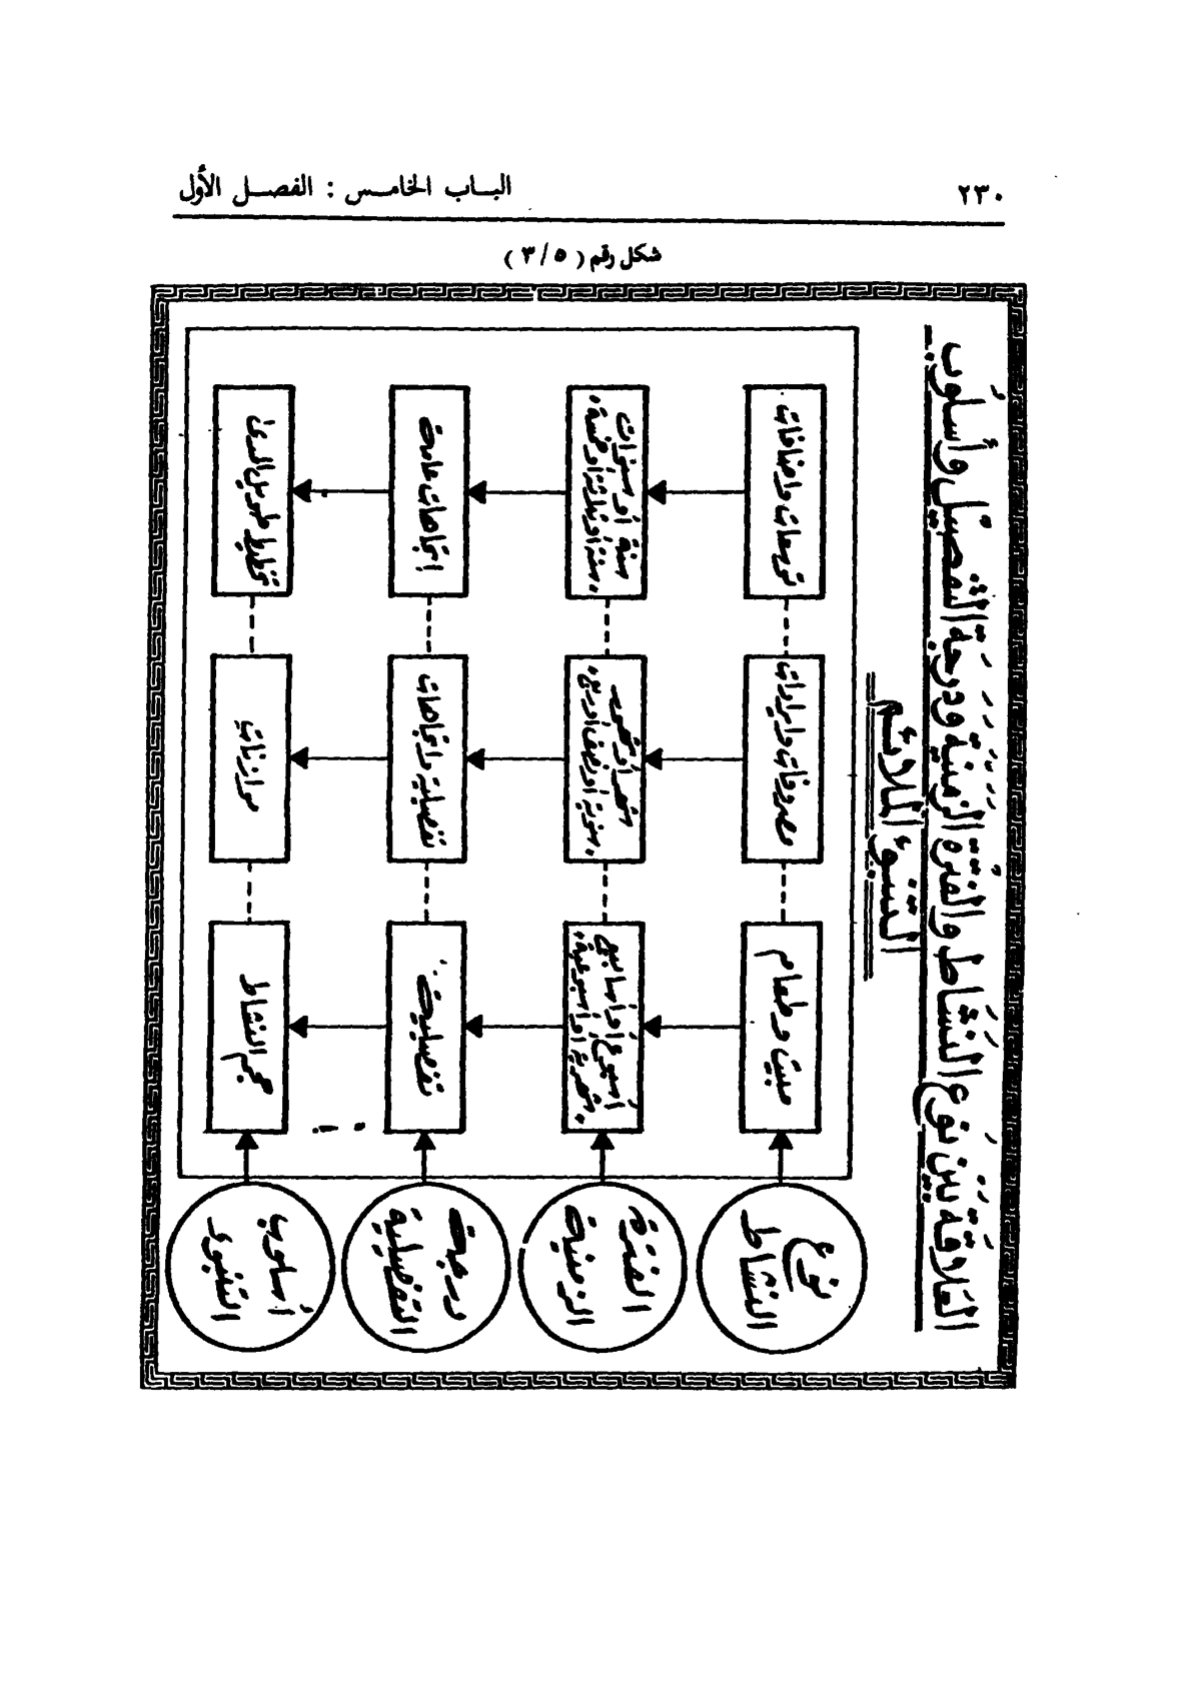 ٢٣٠
البـاب الخامـس : الفصـل الأول
شكل رقم ( ٥ / ٣ )
العلاقة بين نوع النشاط والفترة الزمنية ودرجة التفصيل وأسلوب
التنبؤ الملائم
نوع
النشاط
مبيت وطعام
مصروفات وايرادات
توسعات واضافات
الفترة
الزمنية
أسبوع أو أسابيع
شهرية أو أسبوعية
شهر أو شهور
سنوية أو نصف أو ربع
سنة أو سنوات
سنة أو ثلاثة أو خمسة
درجة
التفصيلية
تفصيلية
تفصيلية واتجاهات
اتجاهات عامة
أسلوب
التنبوى
حجم النشاط
موازنات
تخطيط طويل المدى